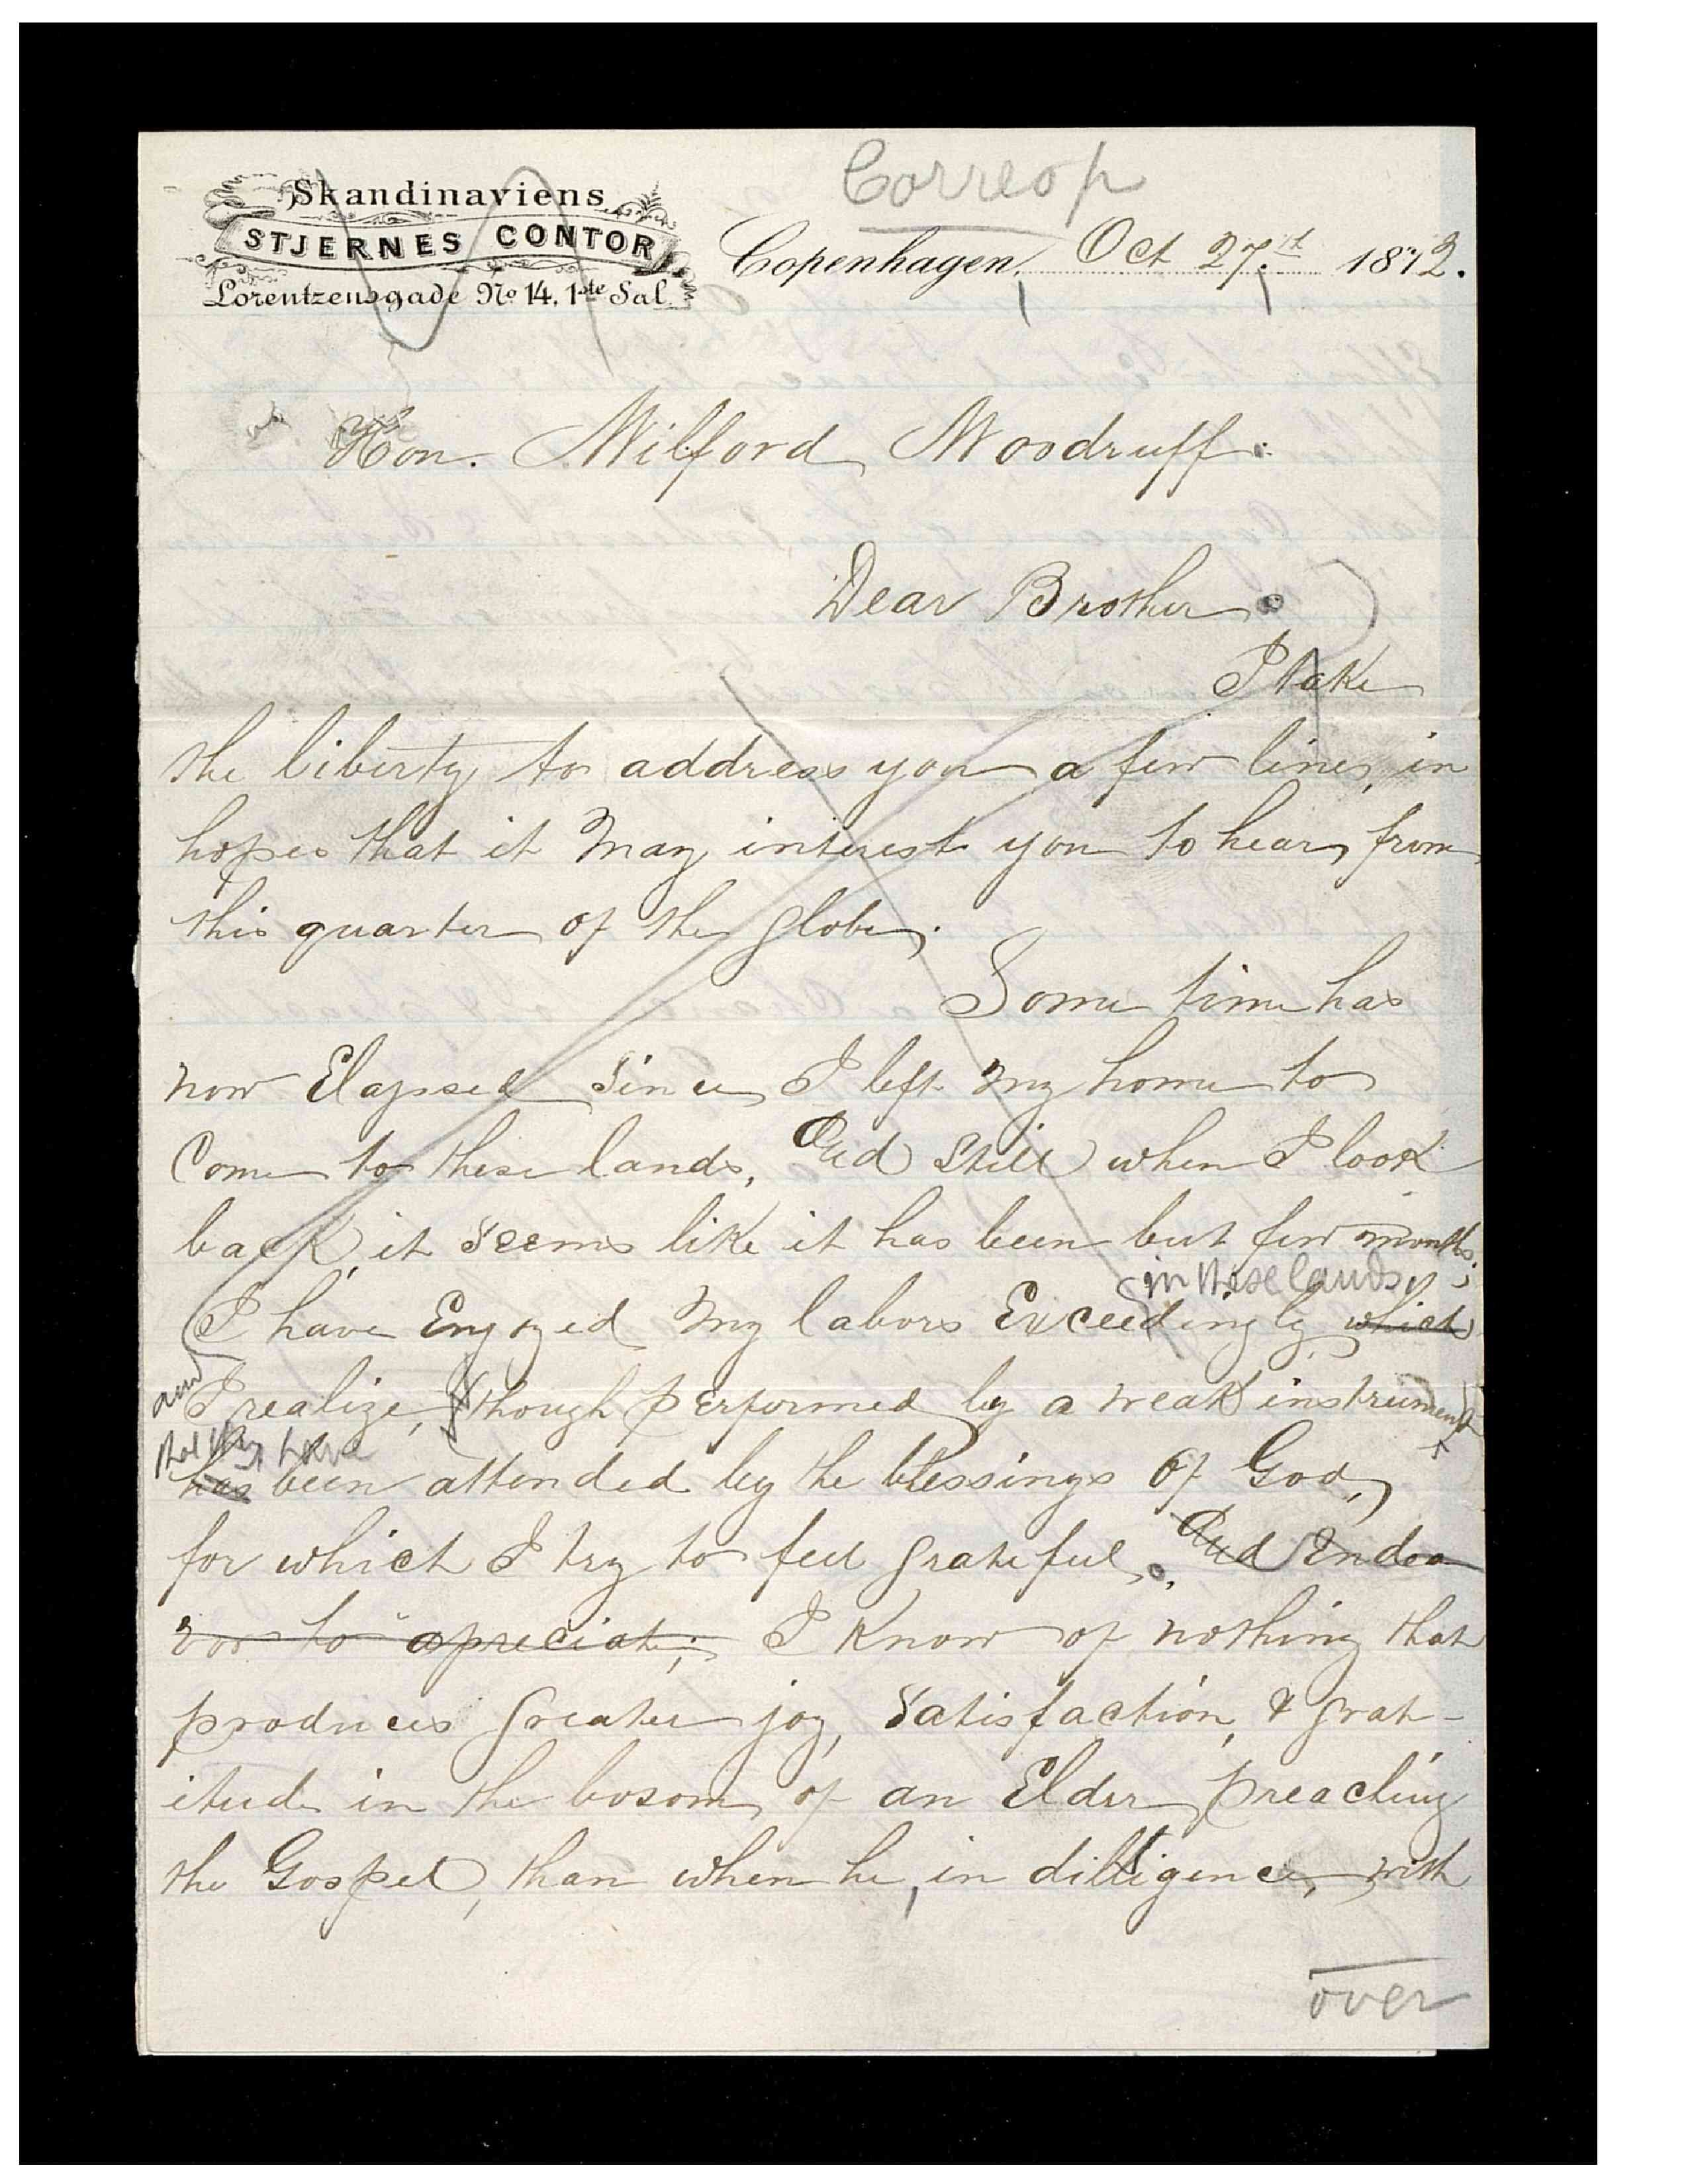 Corresp
Skandinaviens
STJERNES CONTOR
Lorentzensgade No 14, 1ste Sal.
Copenhagen, Oct 27.st 1872.
Hon. Wilford Woodruff:
Dear Brother:
I take
the liberty to address you a few lines, in
hopes that it may interest you to hear, from
this quarter of the globe.
Some time has
now Elapsed since I left my home to
Come to these lands. And still when I look
back, it seems like it has been but few months;
in these lands,
I have Enjoyed my labors Exceedingly, which
and I realize, though performed by a weak instrument
that they have
has been attended by the blessings of God,
for which I try to feel grateful. And Endea
vor to apreciat; I know of nothing that
produces greater joy, satisfaction, & grat-
itude in the bosom of an Elder preaching
the Gospel, than when he, in dilligence, with
over